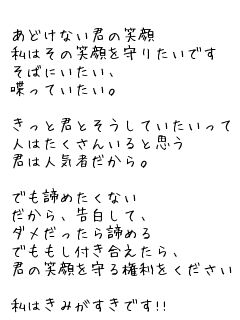 あどけない君の笑顔
私はその笑顔を守りたいです
そばにいたい、
喋っていたい。

きっと君とそうしていたいって
人はたくさんいると思う
君は人気者だから。

でも諦めたくない
だから、告白して、
ダメだったら諦める
でももし付き合えたら、
君の笑顔を守る権利をください

私はきみがすきです!!